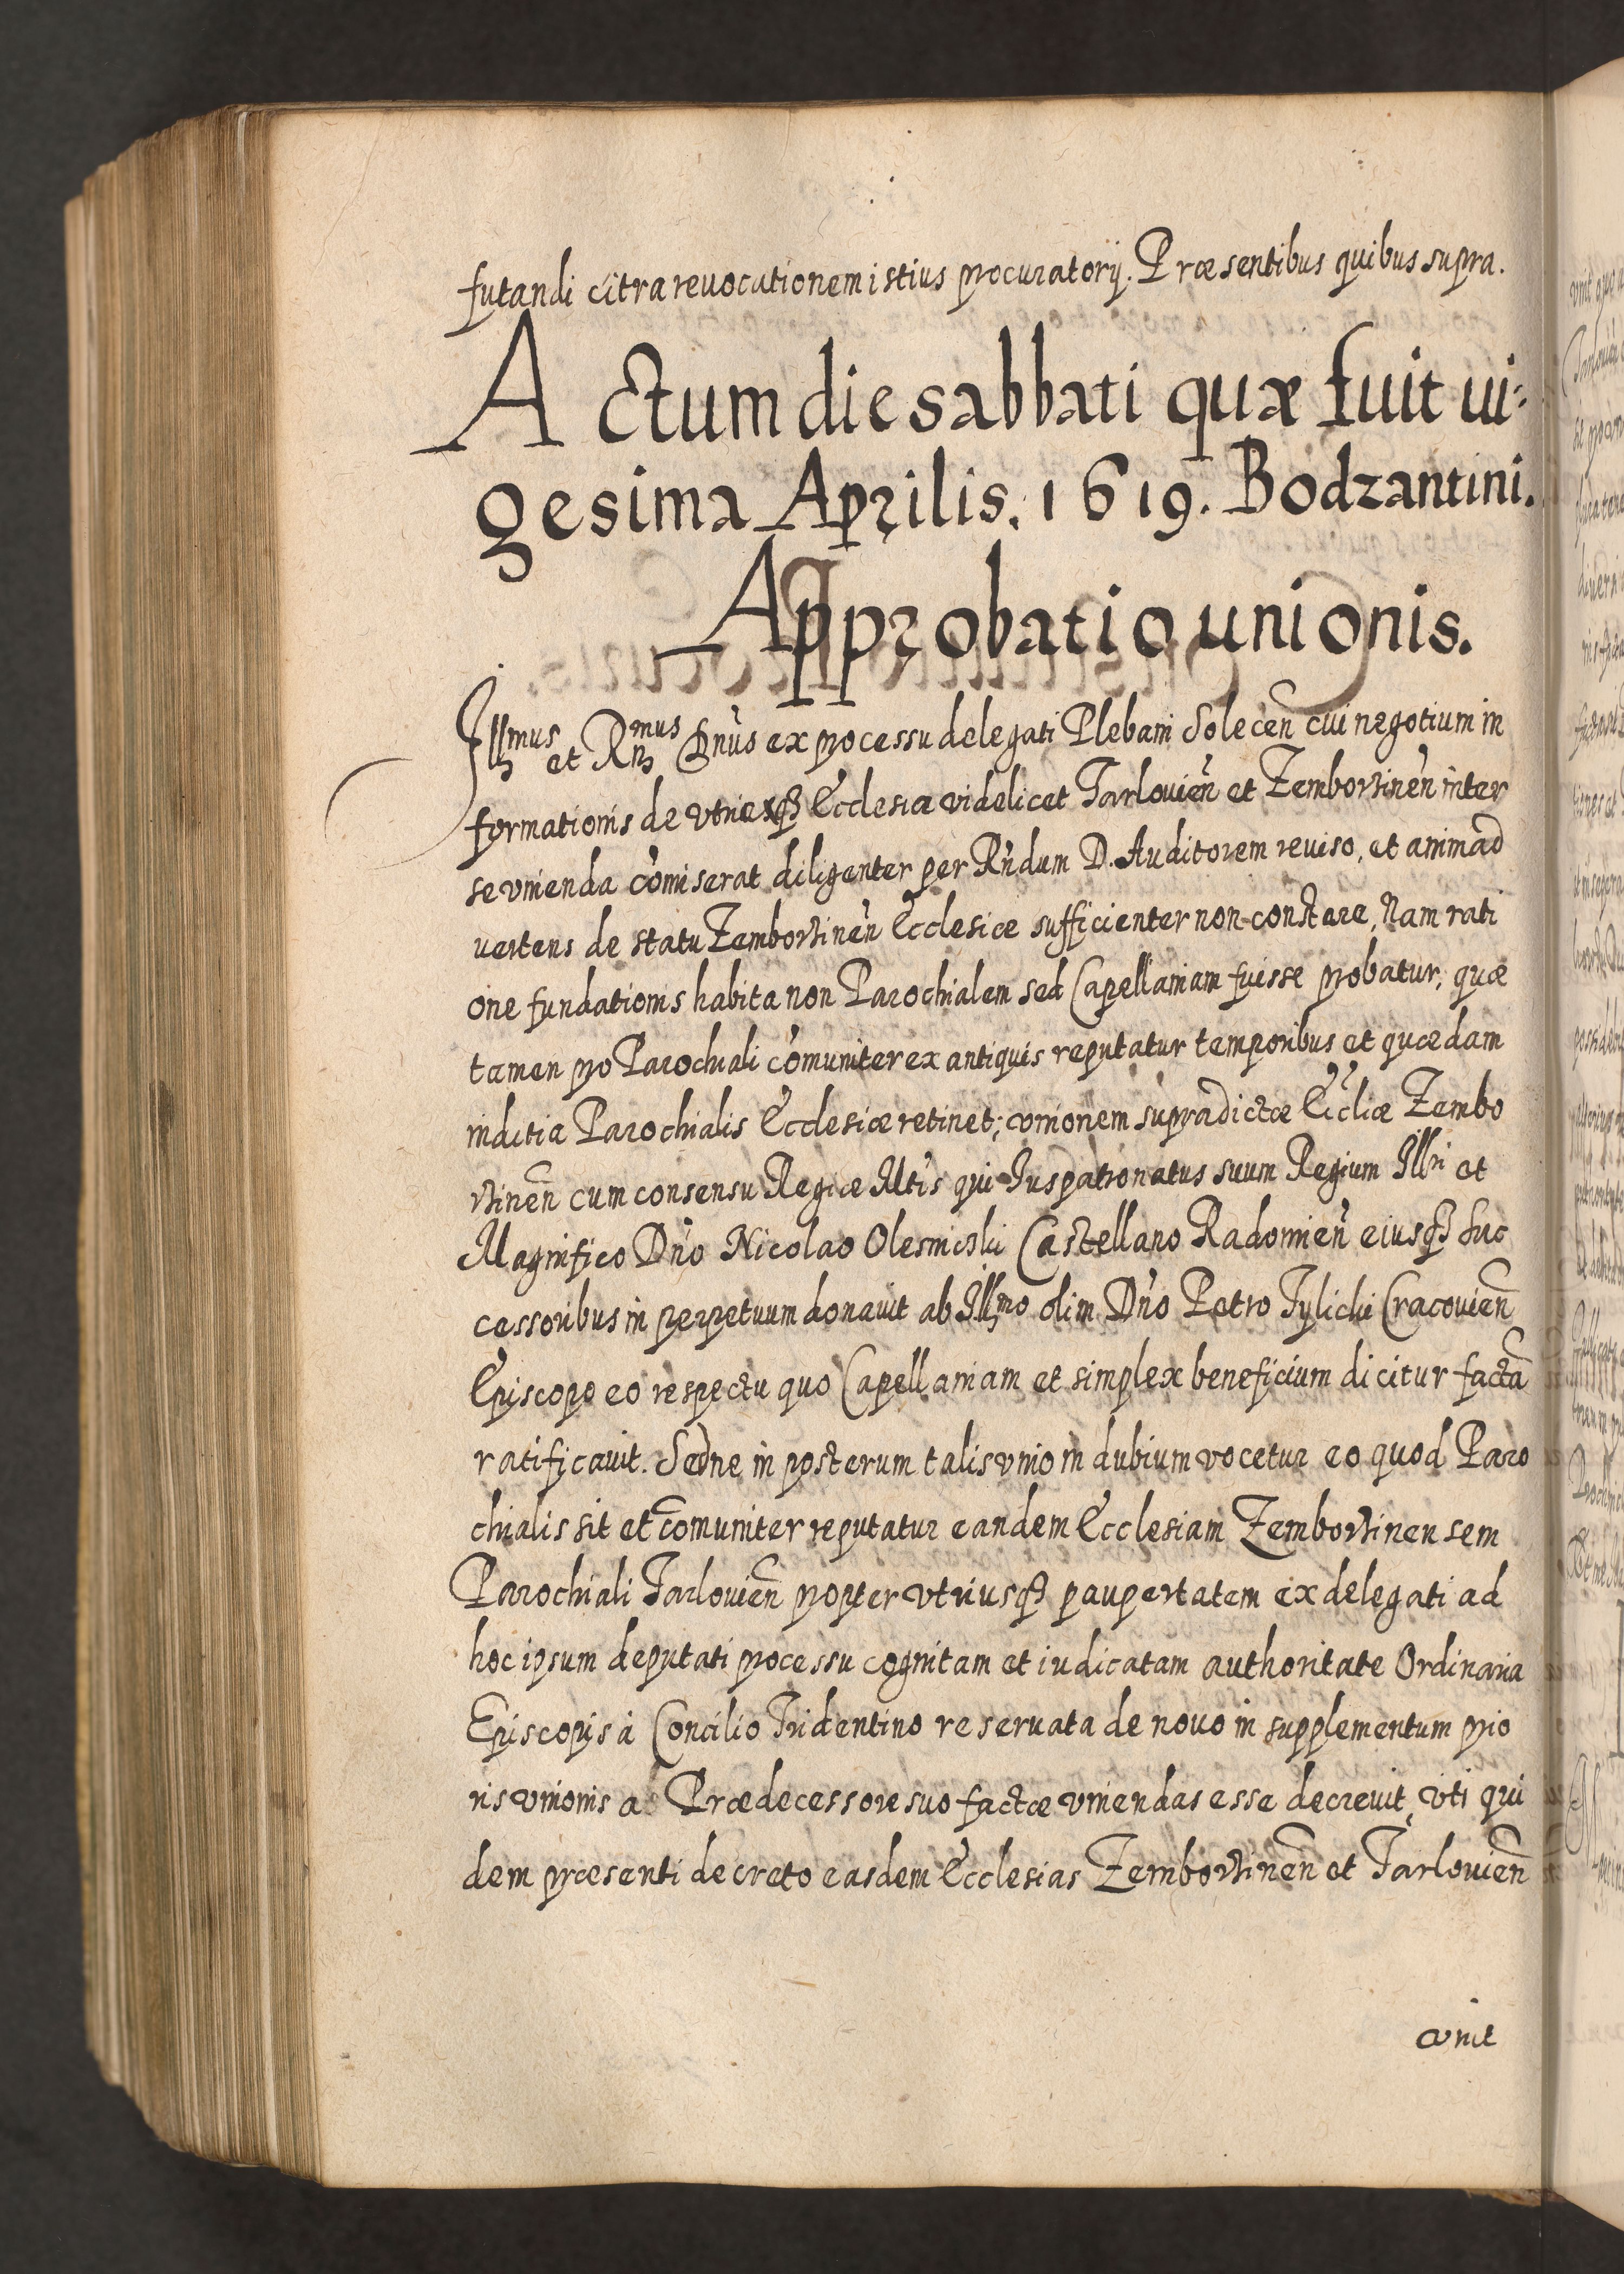 futandi citra reuocationem istius procuratorij. Præsentibus quibus supra.
Actum die sabbati quæ fuit ui-
gesima Aprilis. 1619. Bodzantini.
Approbatio unionis.
Illmus et Rmus Dn̄us ex processu delegati Plebani Solecen̄ cui negotium in
formationis de vtriexq3 Ecclesia videlicet Tarlouien̄ et Zemborzinen̄ inter
se vnienda com̄iserat diligenter per Rn̄dum D. Auditorem reuiso, et animad
uertens de statu Zemborzinen̄ Ecclesiæ sufficienter non constare, Nam rati
one fundationis habita non Parochialem sed Capellaniam fuisse probatur, quæ
tamen pro Parochiali com̄uniter ex antiquis reputatur temporibus et quædam
inditia Parochialis Ecclesiæ retinet; vnionem supradictæ Ecc̄liæ Zembo
rzinen̄ cum consensu Regiæ Mt̄is qui Iuspatronatus suum Regium Illri et
Magnifico Dn̄o Nicolao Olesnicski Castellano Radomien̄ eiusq3 suc
cessoribus in perpetuum donauit ab Illmo olim Dn̄o Petro Tylicki Cracouien̄
Episcopo eo respectu quo Capellaniam et simplex beneficium dicitur factā
ratificauit. Sed ne in posterum talis vnio in dubium vocetur eo quod Paro
chialis sit et com̄uniter reputatur eandem Ecclesiam Zemborzinensem
Parochiali Tarlouien̄ propter vtriusq3 paupertatem ex delegati ad
hoc ipsum deputati processu cognitam et iudicatam authoritate Ordinaria
Episcopis à Concilio Tridentino reseruata de nouo in supplementum prio
ris vnionis a Prædecessore suo factæ vniendas esse decreuit, vti qui
dem præsenti decreto easdem Ecclesias Zemborzinen̄ et Tarlouien̄
vnit